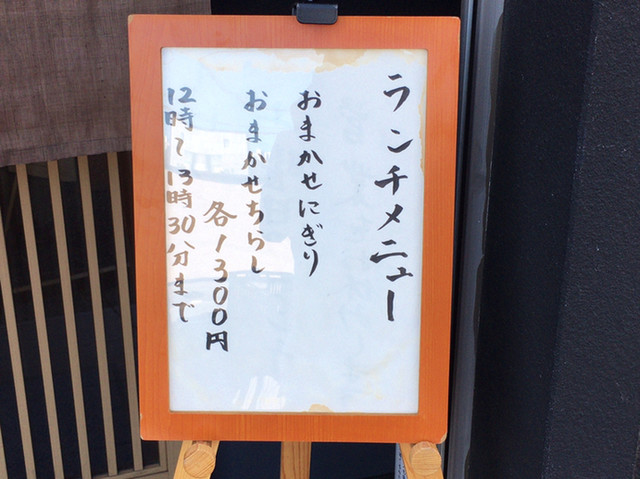 ランチメニュー
おまかせにぎり
おまかせちらし
各1300円
12時〜13時30分まで